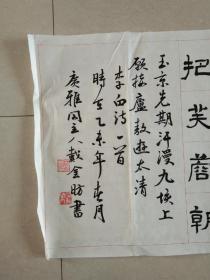 把芙蓉朝
玉京先期汗漫九垓上
願接盧敖遊太清
李白詩一首
時在乙未年春月
雅閣主人戴金書